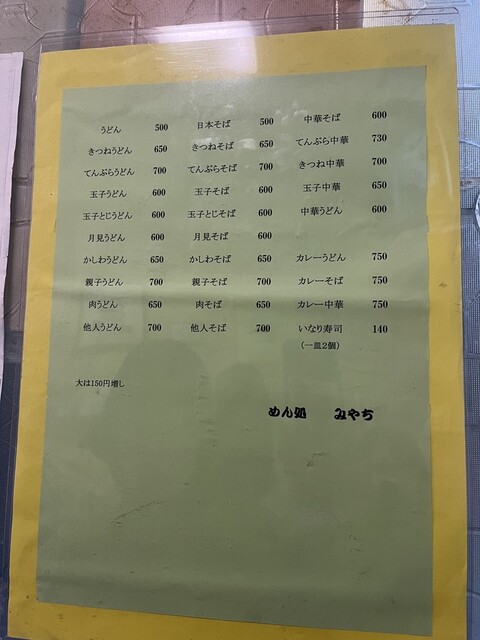 うどん 500 日本そば 500 中華そば 600
きつねうどん 650 きつねそば 650 てんぷら中華 730
てんぷらうどん 700 てんぷらそば 700 きつね中華 700
玉子うどん 600 玉子そば 600 玉子中華 650
玉子とじうどん 600 玉子とじそば 600 中華うどん 600
月見うどん 600 月見そば 600
かしわうどん 650 かしわそば 650 カレーうどん 750
親子うどん 700 親子そば 700 カレーそば 750
肉うどん 650 肉そば 650 カレー中華 750
他人うどん 700 他人そば 700 いなり寿司 140
(一皿2個)
大は150円増し
めん処 みやち